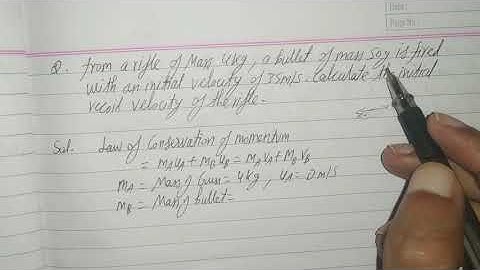 Date:
Page No:
Q. From a rifle of Mass 4kg, a bullet of mass 50g is fired
with an initial velocity of 35m/s. Calculate the initial
recoil velocity of the rifle.
Sol. Law of Conservation of momentum
= mAuA + mBuB = mAvA + mBvB
mA = Mass of Gun = 4kg, uA = 0m/s
mB = Mass of bullet =